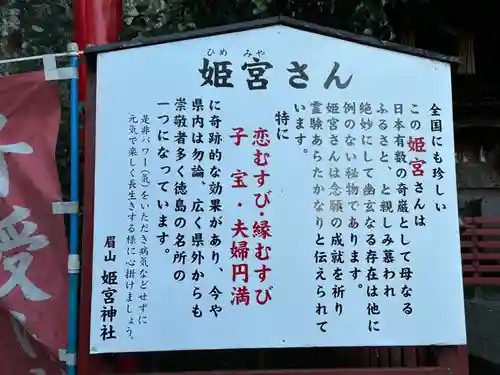 ひめ みや
姫宮さん
全国にも珍しい
この姫宮さんは
日本有数の奇巌として母なる
ふるさと、と親しみ慕われ
絶妙にして幽玄なる存在は他に
例のない秘物であります。
姫宮さんは念願の成就を祈り
霊験あらたかなりと伝えられて
います。
特に
恋むすび・縁むすび
子宝・夫婦円満
に奇跡的な効果があり、今や
県内は勿論、広く県外からも
崇敬者多く徳島の名所の
一つになっています。
是非パワー(気)をいただき病気などせずに
元気で楽しく長生きする様に心掛けましょう。
眉山 姫宮神社
子授